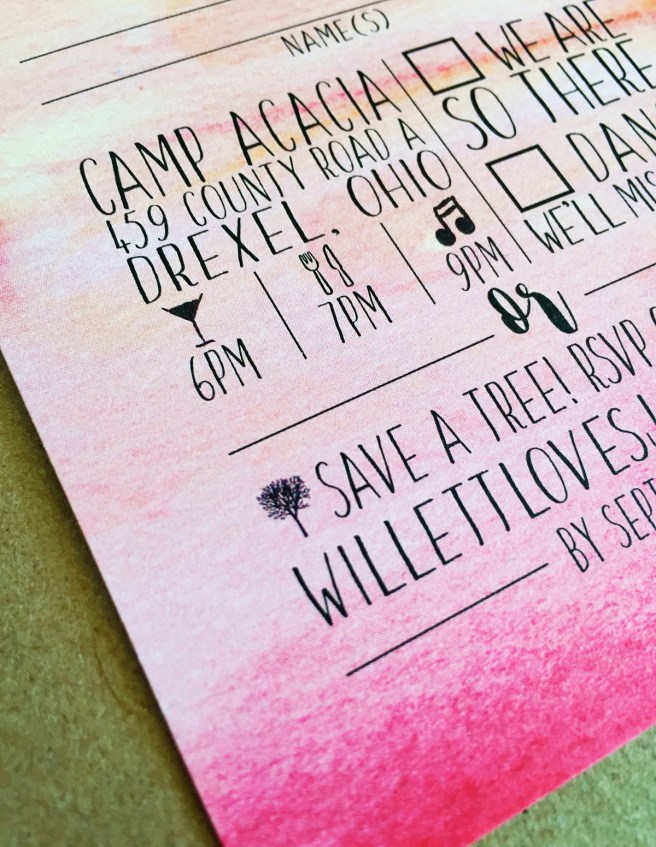 NAME(S)
CAMP ACACIA
459 COUNTY ROAD A
DREXEL, OHIO
6PM
7PM
9PM
WE ARE
SO THERE
DAN
WE'LL MIS
or
SAVE A TREE! RSVP
WILLETTLOVES
BY SEPT